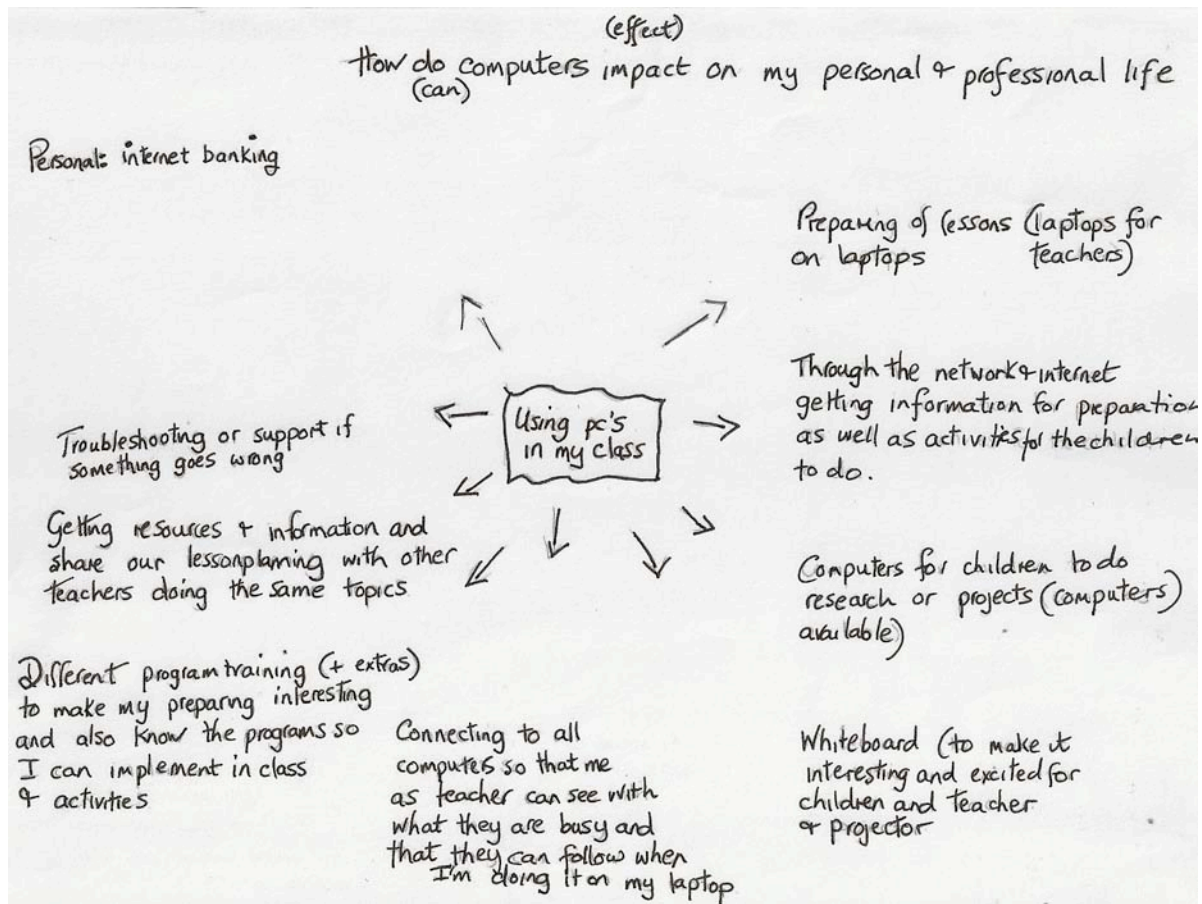 (effect)
How do computers impact on my personal & professional life
(can)
Personal: internet banking
Preparing of lessons (laptops for
on laptops teachers)
Using pc's
in my class
Through the network & internet
getting information for preparation
as well as activities for the children
to do.
Troubleshooting or support if
something goes wrong
Getting resources & information and
share our lessonplanning with other
teachers doing the same topics
Computers for children to do
research or projects (computers)
available)
Different program training (+ extras)
to make my preparing interesting
and also know the programs so
I can implement in class
& activities
Connecting to all
computes so that me
as teacher can see with
what they are busy and
that they can follow when
I'm doing it on my laptop
Whiteboard (to make it
interesting and excited for
children and teacher
& projector